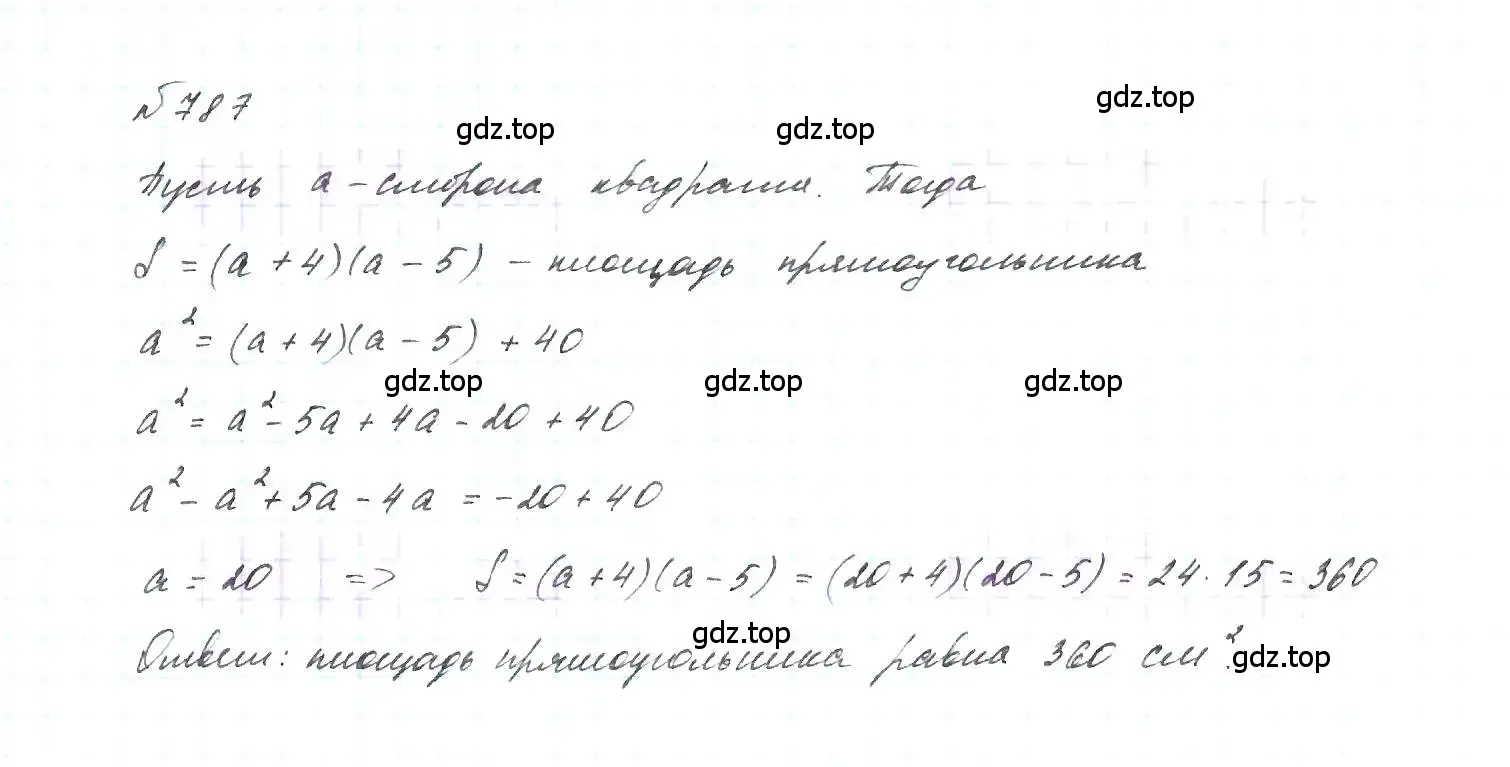 №787
gdz.top gdz.top gdz.top
Пусть a - сторона квадрата. Тогда
S = (a + 4)(a - 5) - площадь прямоугольника
a² = (a + 4)(a - 5) + 40
gdz.top gdz.top gdz.top
a² = a² - 5a + 4a - 20 + 40
a² - a² + 5a - 4a = -20 + 40
a = 20 => S = (a + 4)(a - 5) = (20 + 4)(20 - 5) = 24 · 15 = 360
gdz.top
Ответ: площадь прямоугольника равна 360 см². gdz.top